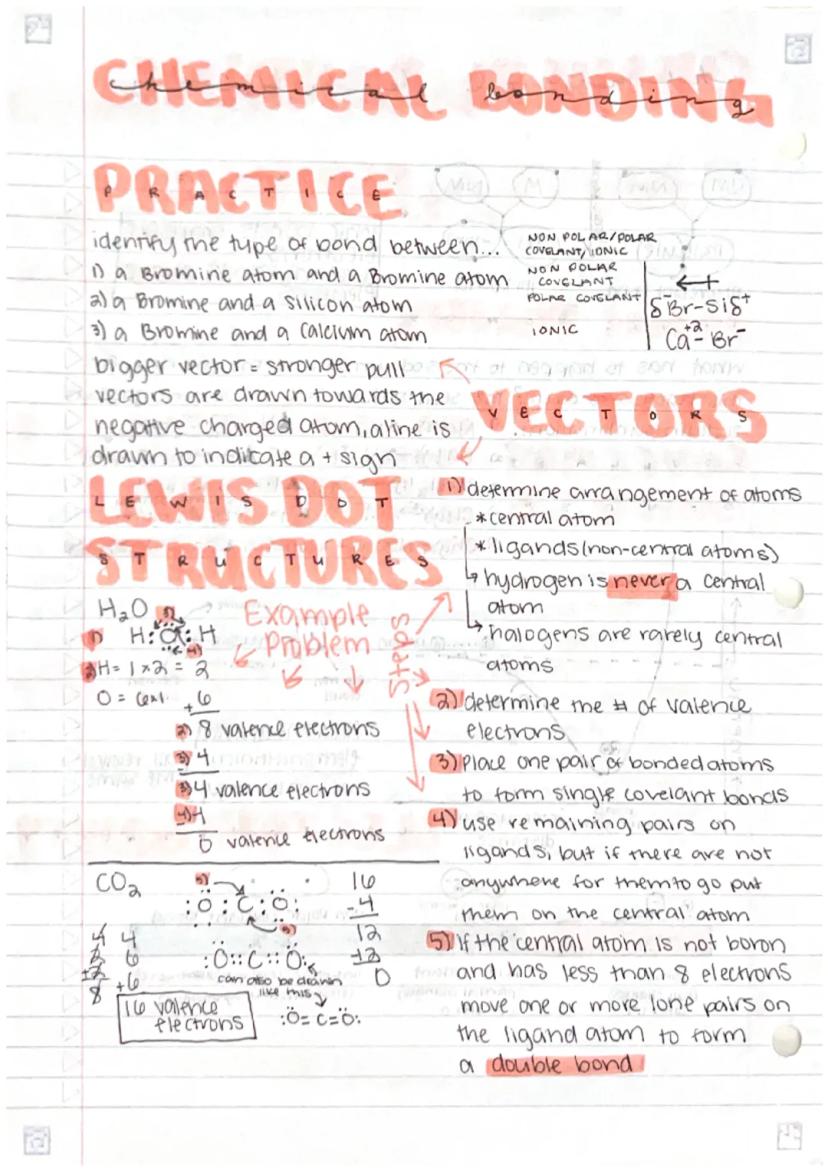 CHEMICAL BONDING
chemical bonding
PRACTICE
PRACTICE
identify the type of bond between...
NON POLAR/POLAR
COVELANT/IONIC
1) a Bromine atom and a Bromine atom
NON POLAR
COVELANT
2) a Bromine and a silicon atom
POLAR COVELANT
δ⁻Br-Siδ⁺
3) a Bromine and a Calcium atom
IONIC
Ca⁺²-Br⁻
bigger vector = stronger pull
vectors are drawn towards the
negative charged atom, a line is
drawn to indicate a + sign
VECTORS
VECTORS
LEWIS DOT
LEWIS DOT
STRUCTURES
STRUCTURES
H₂O
1) H:O:H
4)
Example
Problem
2) H = 1×2 = 2
O = 6×1
+6
2) 8 valence electrons
3) 4
3) 4 valence electrons
4) 4
0 valence electrons
Steps
1) determine arrangement of atoms
*central atom
*ligands (non-central atoms)
↳ hydrogen is never a central
atom
↳ halogens are rarely central
atoms
2) determine the # of valence
electrons
3) Place one pair of bonded atoms
to form single covelant bonds
4) use remaining pairs on
ligands, but if there are not
anywhere for them to go put
them on the central atom
5) If the central atom is not boron
and has less than 8 electrons
move one or more lone pairs on
the ligand atom to form
a double bond
CO₂
5)
:O:C:O:
5)
16
-4
12
-12
0
4
6
+6
8
:O::C::O:
can also be drawn
like this
16 valence
electrons
:Ö=C=Ö: